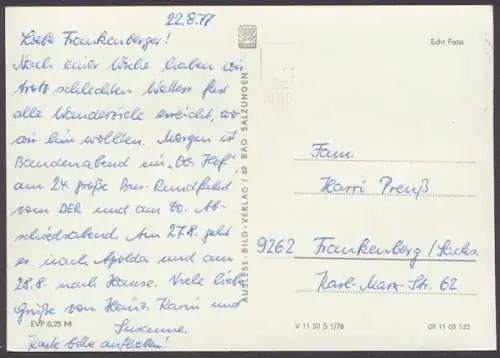 22.8.77
Liebe Frankenberger!
Nach einer Woche haben wir
trotz schlechten Wetters fast
alle Wanderziele erreicht, wo
wir hin wollten. Morgen ist
Baudenabend im „Ob. Hof",
am 24. große Bus-Rundfahrt
vom DER und am Do. Ab-
schiedsabend. Am 27.8. geht
es nach Apolda und am
28.8. nach Hause. Viele liebe
Grüße von Heinz, Karin und
Susanne.
EVP 0,25 M
Karte bitte aufheben!
AUSLESE-BILD-VERLAG / 62 BAD SALZUNGEN
Echt Foto
Fam.
Harri Preuß
9262 Frankenberg/Sachs.
Karl-Marx-Str. 62
V 11 50 S 1/76